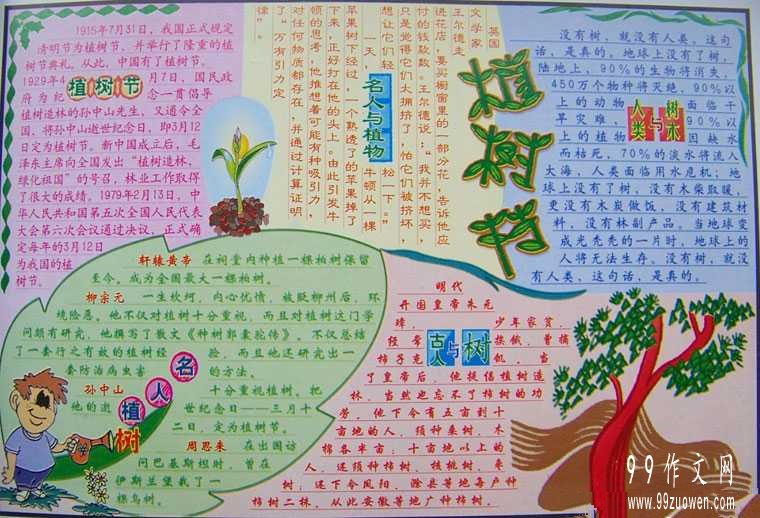 1915年7月31日，我国正式规定
清明节为植树节，并举行了隆重的植
树节典礼。从此，中国有了植树节。
1929年4
月7日，国民政
府为纪
念一贯倡导
植树节
植树造林的孙中山先生，又通令全
国，将孙中山逝世纪念日，即3月12
日定为植树节。新中国成立后，毛
泽东主席向全国发出“植树造林，
绿化祖国”的号召，林业工作取得
了很大的成绩。1979年2月13日，中
华人民共和国第五次全国人民代表
大会第六次会议通过决议，正式确
定每年的3月12日
为我国的植
树节。
英国
文学家
王尔德走
进花店，要买橱窗里的一部分花，告诉他应
付的钱款数。王尔德说：“我并不想买，
只是觉得它们太拥挤了 怕它们被挤坏，
想让它们轻
松一下。”
名人与植物
一天，
牛顿从一棵
苹果树下经过，一个熟透了的苹果掉了
下来，正好打在他的头上。由此引发牛
顿的思考，他推想着可能有种吸引力，
对任何物质都存在，并通过计算证明
了“万有引力定
律”。
没有树，就没有人类。这句
话，是真的。地球上没有了树，
陆地上，90％的生物将消失，
450万个物种将灭绝，90％以
上的动物
面临干
旱灾难，
90％以
上的植物
因缺水
人类与树木
而枯死，70％的淡水将流入
大海，人类面临用水危机；地
球上没有了树，没有木柴取暖，
更没有木炭做饭，没有建筑材
料，没有林副产品。当地球变
成光秃秃的一片时，地球上的
人将无法生存。没有树，就没
有人类，这句话，是真的。
轩辕黄帝 在祠堂内种植一棵柏树保留
至今。成为全国最大一棵柏树。
柳宗元 一生坎坷，内心忧愤，被贬柳州后，环
境险恶。他不仅对植树十分重视，而且对植树这门学
问颇有研究，他撰写了散文《种树郭橐驼传》。不仅总结
了一套行之有效的植树经
验，而且他还研究出一
套防治病虫害
的方法。
植树人名
孙中山
十分重视植树。把
他的逝
世纪念日——三月十
二日，定为植树节。
周恩来 在出国访
问巴基斯坦时，曾在
伊斯兰堡栽了一
棵乌树。
明代
开国皇帝朱元
璋，
少年家贫，
经常
挨饿，曾摘
柿子充
饥，当
古人与树
了皇帝后，他提倡植树造
林，当然也忘不了柿树的功
劳，他下令有五亩到十
亩地的人，须种桑树、木
棉各半亩；十亩地以上的
人，还须种柿树、核桃树、枣
树；还下令凤阳、滁县等地每户种
柿树二株，从此安徽等地广种柿树。
99作文网
www.99zuowen.com